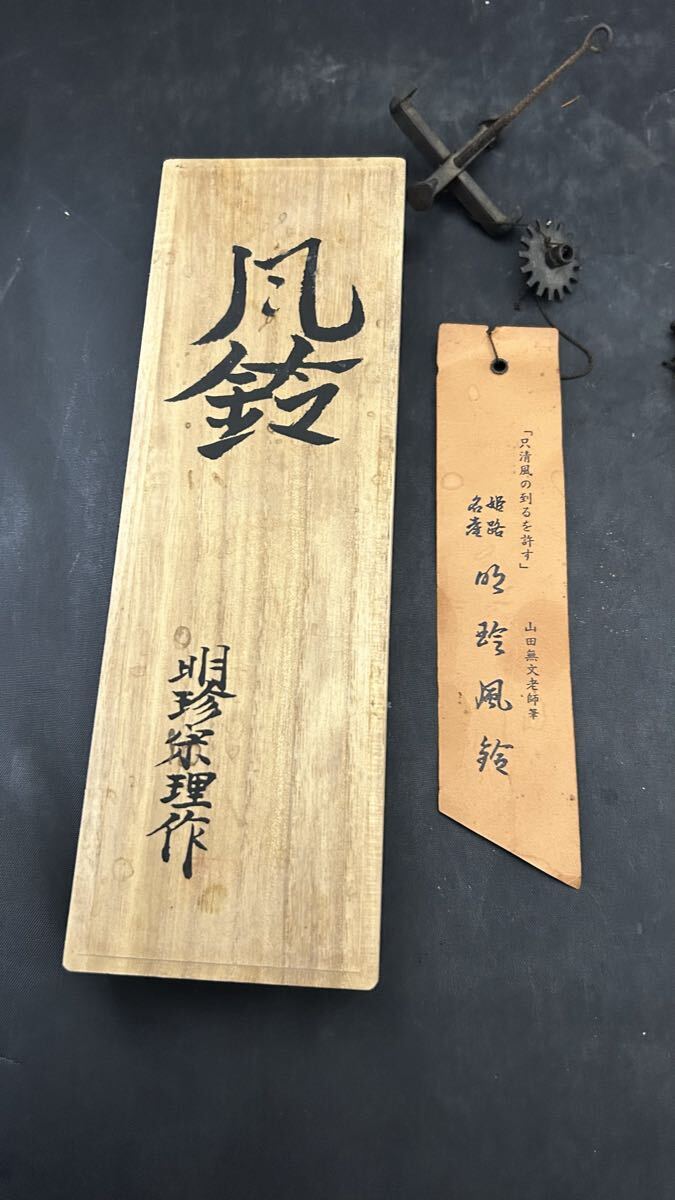 風鈴
明珍宗理作
「只清風の到るを許す」
山田無文老師筆
姫路
名産
明珍風鈴